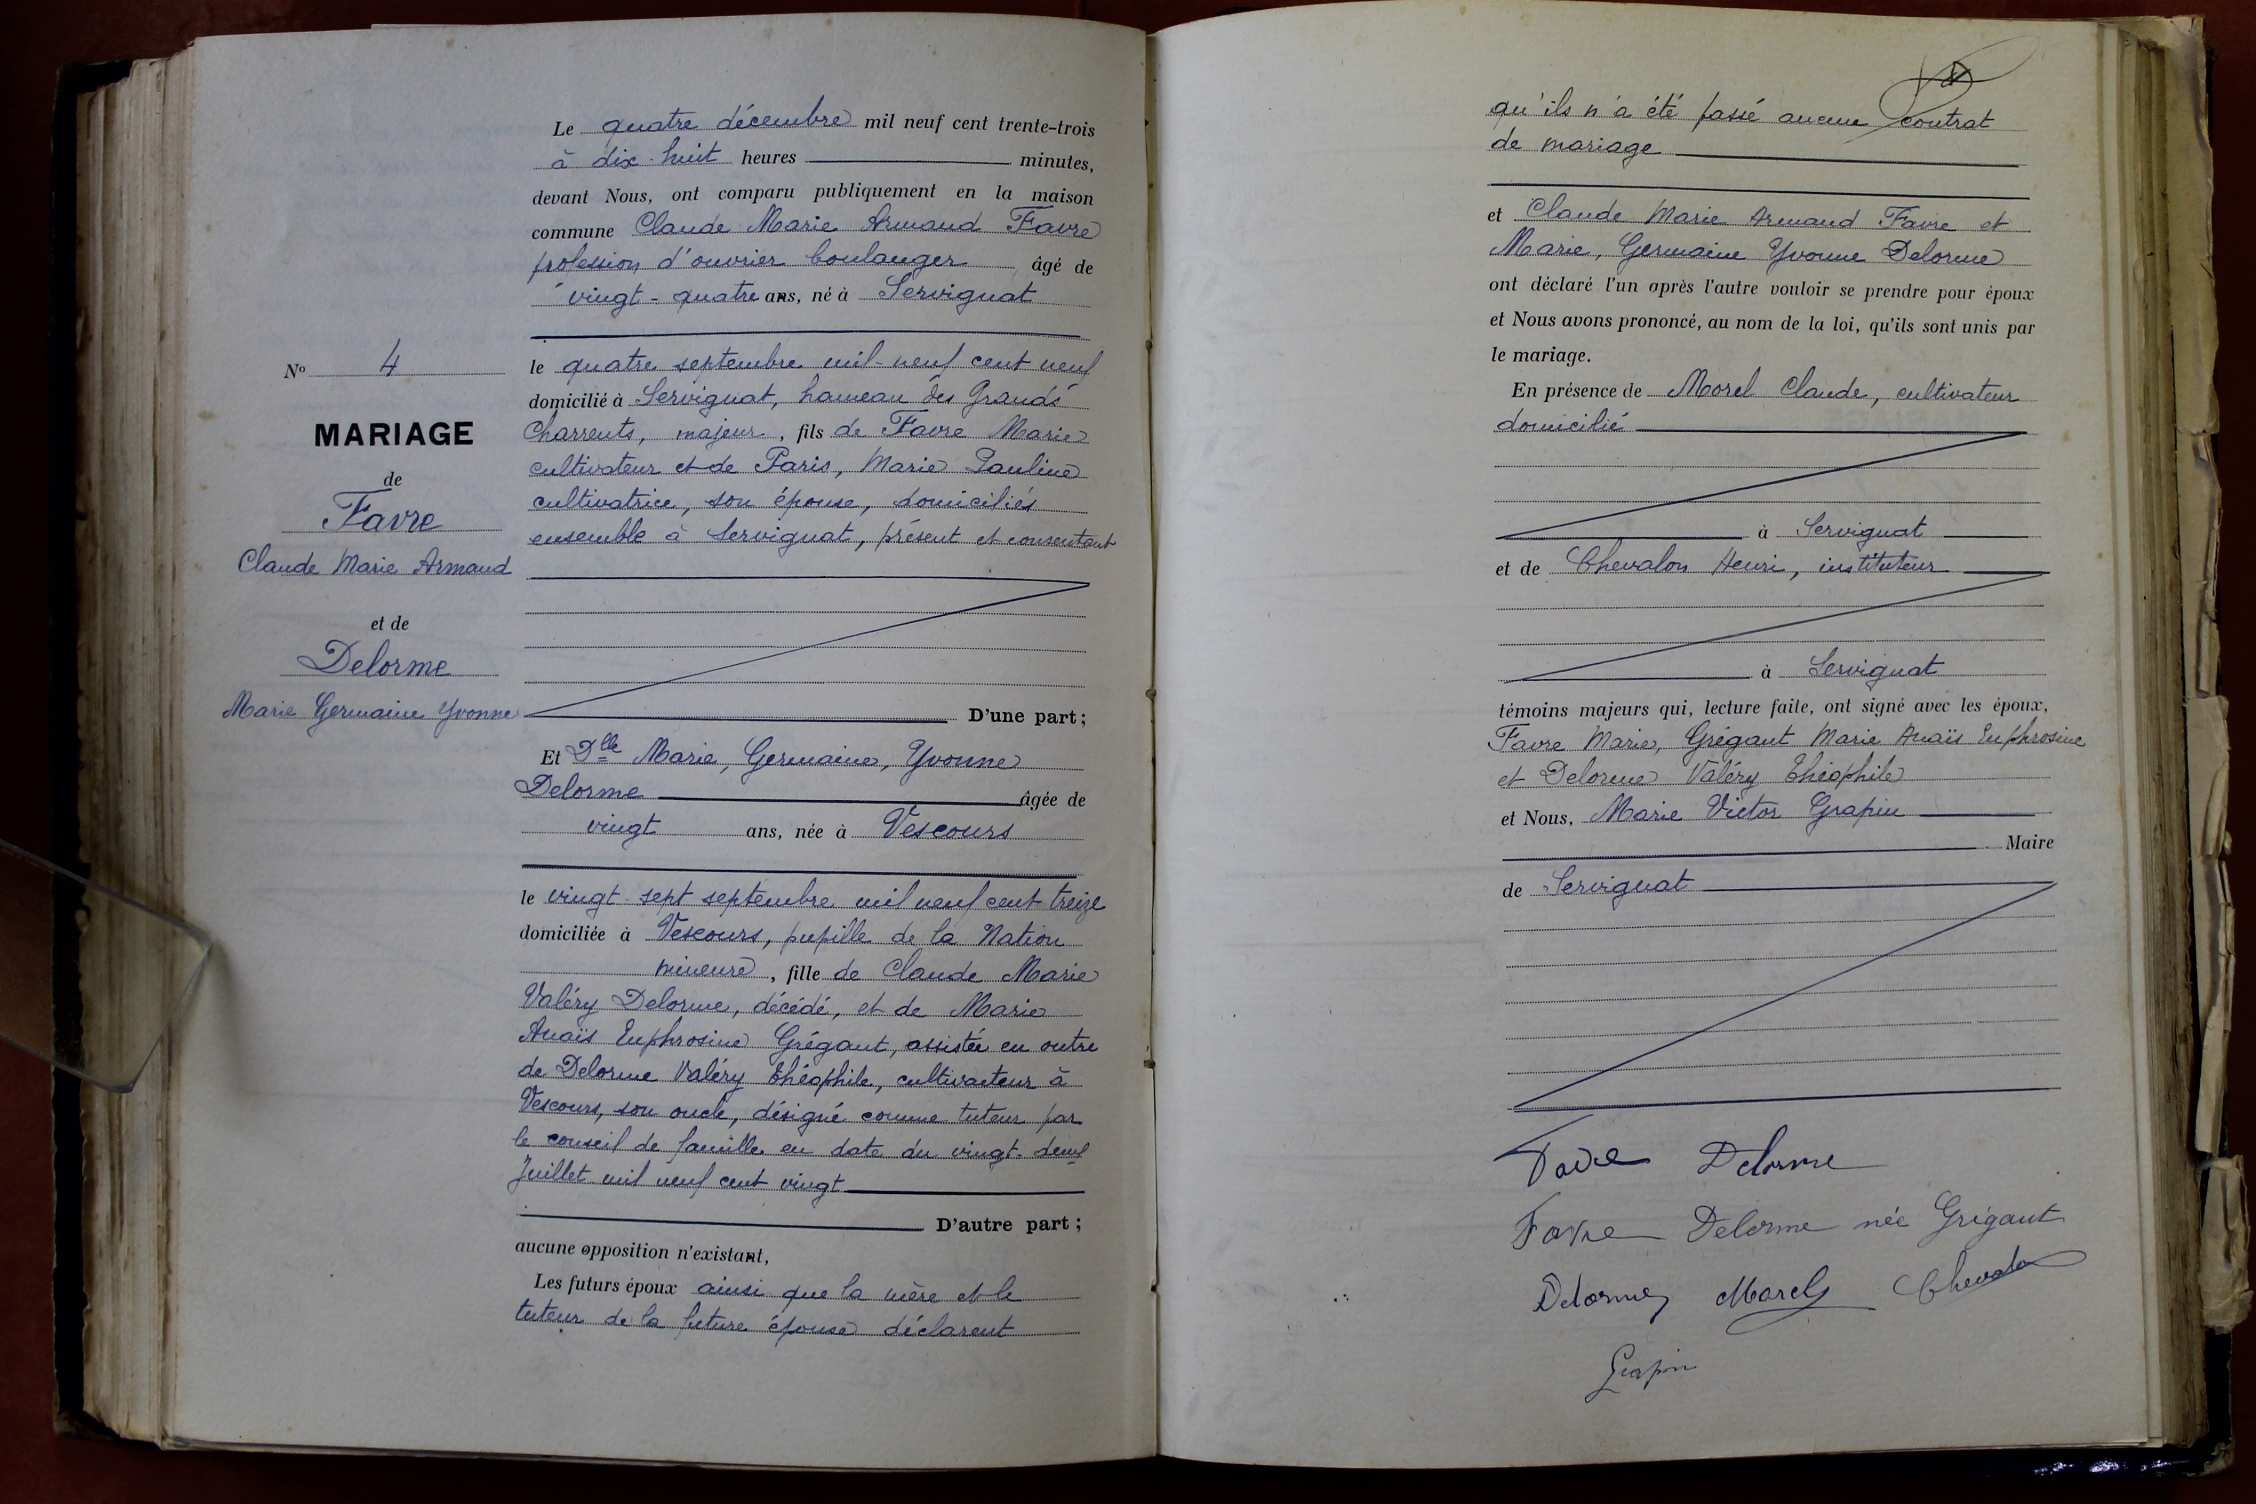 Le quatre décembre mil neuf cent trente-trois
à dix-huit heures minutes,
devant Nous, ont comparu publiquement en la maison
commune Claude Marie Armand Favre
profession d'ouvrier boulanger âgé de
vingt-quatre ans, né à Servignat
le quatre septembre mil-neuf cent neuf
domicilié à Servignat, hameau des Grands
Charrents, majeur, fils de Favre Marie
cultivateur et de Paris, Marie Pauline
cultivatrice, son épouse, domiciliés
ensemble à Servignat, présent et consentant
D'une part;
Nº 4
MARIAGE
de
Favre
Claude Marie Armand
et de
Delorme
Marie Germaine Yvonne
Et Dlle Marie, Germaine, Yvonne
Delorme âgée de
vingt ans, née à Vescours
le vingt-sept septembre mil neuf cent treize
domiciliée à Vescours, pupille de la Nation
mineure, fille de Claude Marie
Valéry Delorme, décédé, et de Marie
Anaïs Euphrosine Grégaut, assistée en outre
de Delorme Valéry Théophile, cultivateur à
Vescours, son oncle, désigné comme tuteur par
le conseil de famille en date du vingt-deux
Juillet mil neuf cent vingt
D'autre part;
aucune opposition n'existant,
Les futurs époux ainsi que la mère et le
tuteur de la future épouse déclarent
qu'ils n'a été passé aucun contrat
de mariage
et Claude Marie Armand Favre et
Marie, Germaine Yvonne Delorme
ont déclaré l'un après l'autre vouloir se prendre pour époux
et Nous avons prononcé, au nom de la loi, qu'ils sont unis par
le mariage.
En présence de Morel Claude, cultivateur
domicilié
à Servignat
et de Chevalon Henri, instituteur
à Servignat
témoins majeurs qui, lecture faite, ont signé avec les époux,
Favre Marie, Grégaut Marie Anaïs Euphrosine
et Delorme Valéry Théophile
et Nous, Marie Victor Grapin
Maire
de Servignat
Favre Delorme
Favre Delorme née Grégaut
Delorme Morel Chevalon
Grapin